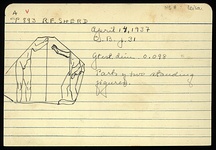 A V
P 893 R.F. SHERD
April 14, 1937
G.B. g. 31
Gtest dim. 0.098
Parts of two standing
figures.